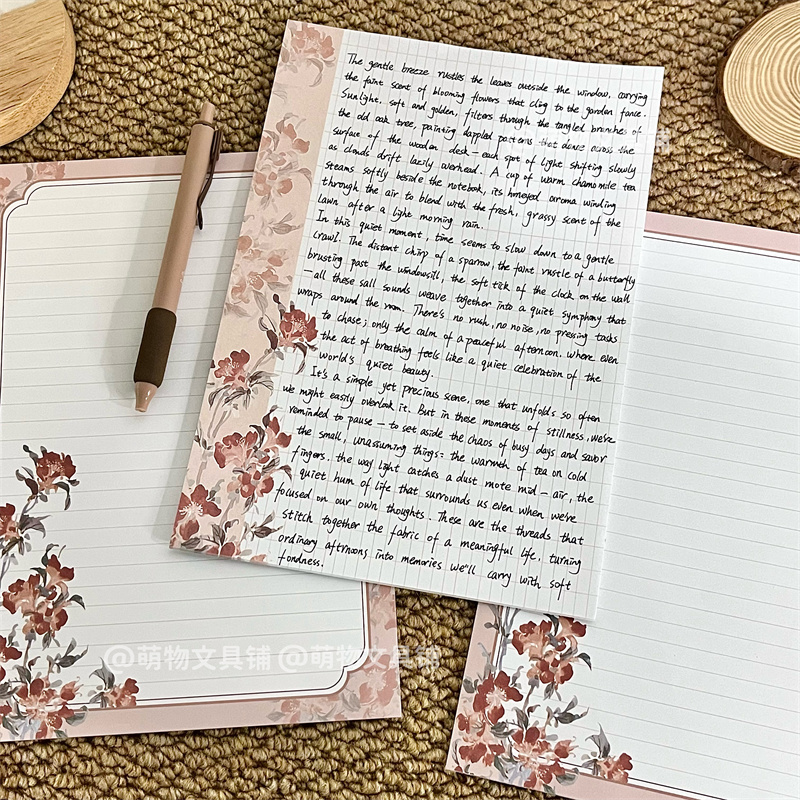 The gentle breeze rustles the leaves outside the window, carrying
the faint scent of blooming flowers that cling to the garden fence.
Sunlight, soft and golden, filters through the tangled branches of
the old oak tree, painting dappled patterns that dance across the
surface of the wooden desk — each spot of light shifting slowly
as clouds drift lazily overhead. A cup of warm chamomile tea
steams softly beside the notebook, its honeyed aroma winding
through the air to blend with the fresh, grassy scent of the
lawn after a light morning rain.
In this quiet moment, time seems to slow down to a gentle
crawl. The distant chirp of a sparrow, the faint rustle of a butterfly
brusting past the windowsill, the soft tick of the clock on the wall
— all these sall sounds weave together into a quiet symphony that
wraps around the room. There's no rush, no noise, no pressing tasks
to chase; only the calm of a peaceful afternoon. where even
the act of breathing feels like a quiet celebration of the
world's quiet beauty.
It's a simple yet precious scene, one that unfolds so often
we might easily overlook it. But in these moments of stillness, we're
reminded to pause — to set aside the chaos of busy days and savor
the small, unassuming things: the warmth of tea on cold
fingers. the way light catches a dust mote mid-air, the
quiet hum of life that surrounds us even when we're
focused on our own thoughts. These are the threads that
stitch together the fabric of a meaningful life, turning
ordinary afternoons into memories we'll carry with soft
fondness.
@萌物文具铺 @萌物文具铺